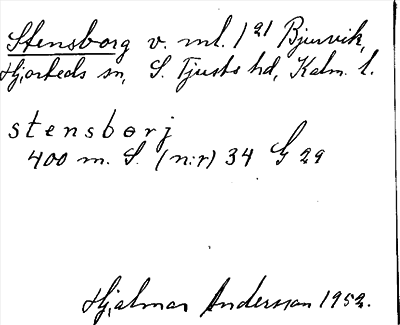 Stensborg v. ml. 1²¹ Bjurvik,
Hjorteds sn, S. Tjusts hd, Kalm. l.
stensbørj
400 m. S. (n:r) 34 G 29
Hjalmar Andersson 1952.